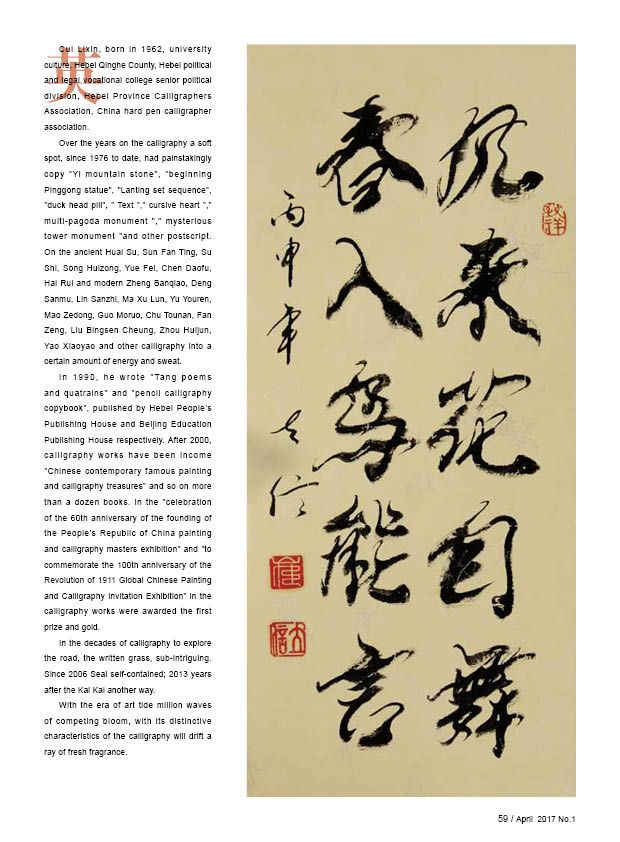 英
Cui Lixin, born in 1962, university
culture, Hebei Qinghe County, Hebei political
and legal vocational college senior political
division, Hebei Province Calligraphers
Association, China hard pen calligrapher
association.
Over the years on the calligraphy a soft
spot, since 1976 to date, had painstakingly
copy "Yi mountain stone", "beginning
Pinggong statue", "Lanting set sequence",
"duck head pill", " Text "," cursive heart ","
multi-pagoda monument "," mysterious
tower monument "and other postscript.
On the ancient Huai Su, Sun Fan Ting, Su
Shi, Song Huizong, Yue Fei, Chen Daofu,
Hai Rui and modern Zheng Banqiao, Deng
Sanmu, Lin Sanzhi, Ma Xu Lun, Yu Youren,
Mao Zedong, Guo Moruo, Chu Tounan, Fan
Zeng, Liu Bingsen Cheung, Zhou Huijun,
Yao Xiaoyao and other calligraphy into a
certain amount of energy and sweat.
In 1990, he wrote "Tang poems
and quatrains" and "pencil calligraphy
copybook", published by Hebei People's
Publishing House and Beijing Education
Publishing House respectively. After 2000,
calligraphy works have been income
"Chinese contemporary famous painting
and calligraphy treasures" and so on more
than a dozen books. In the "celebration
of the 60th anniversary of the founding of
the People's Republic of China painting
and calligraphy masters exhibition" and "to
commemorate the 100th anniversary of the
Revolution of 1911 Global Chinese Painting
and Calligraphy Invitation Exhibition" in the
calligraphy works were awarded the first
prize and gold.
In the decades of calligraphy to explore
the road, the written grass, sub-intriguing.
Since 2006 Seal self-contained; 2013 years
after the Kai Kai another way.
With the era of art tide million waves
of competing bloom, with its distinctive
characteristics of the calligraphy will drift a
ray of fresh fragrance.
風來花自舞
春入鳥能言
丙申年立信
59 / April 2017 No.1